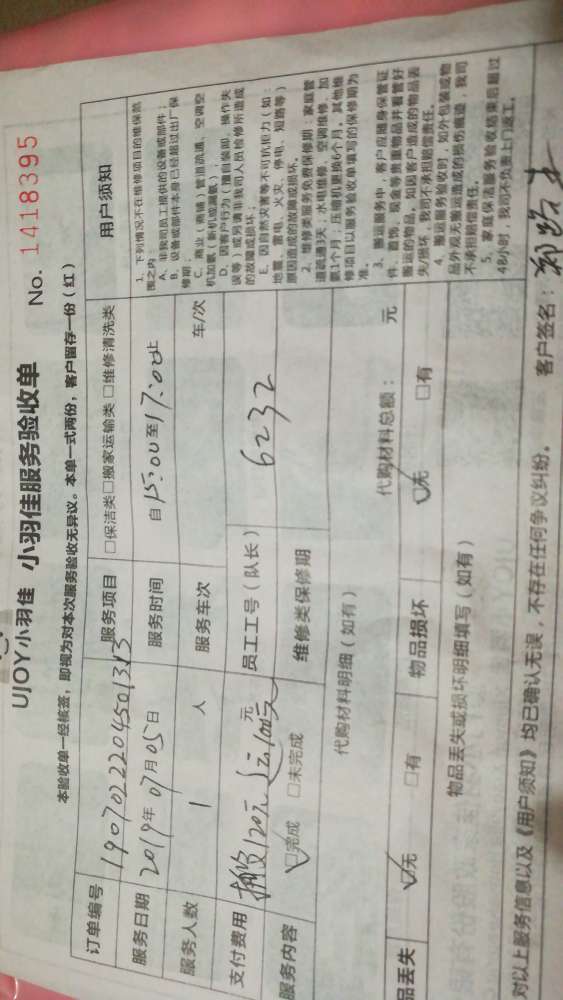 UJOY小羽佳 小羽佳服务验收单 No. 1418395
本验收单一经核签，即视为对本次服务验收无异议。本单一式两份，客户留存一份（红）
订单编号 190702220450 1313
服务项目 □保洁类□搬家运输类 □维修清洗类
服务日期 2019年 07月 05日
服务时间 自 15:00 至 17:00 止
服务人数 1 人
服务车次 车/次
支付费用 120元 100元 元
员工工号（队长） 6232
服务内容 ☑完成 □未完成
维修类保修期
代购材料明细（如有） 代购材料总额： 元
品丢失 ☑无 □有 物品损坏 ☑无 □有
物品丢失或损坏明细填写（如有）
用户须知
1、下列情况不在维修项目的维保范
围之内：
A、非我司员工提供的设备或部件；
B、设备或部件本身已经超过出厂保
修期；
C、商业（商铺）管道疏通、空调空
机加氨（新机或漏氨）
D、因客户行为（擅自装卸、操作失
误等）或另有非我司人员检修所造成
的故障或损坏；
E、因自然灾害等不可抗拒力（如：
地震、雷电、火灾、停电、短路等）
原因造成的故障或损坏。
2、维修类服务免费保修期：家庭管
道疏通3天，水电维修、空调维修、加
氨1个月；压缩机更换6个月。其他维
修项目以服务验收单填写的保修期为
准。
3、搬运服务中，客户应随身保管证
件、首饰、现金等贵重物品并看管好
搬运的物品，如因客户造成的物品丢
失/损坏，我司不承担赔偿责任。
4、搬运服务验收时，如外包装或物
品外观无搬运造成的损伤痕迹，我司
不承担赔偿责任。
5、家庭保洁服务验收结束后超过
48小时，我司不负责上门返工。
对以上服务信息以及《用户须知》均已确认无误，不存在任何争议纠纷。 客户签名：